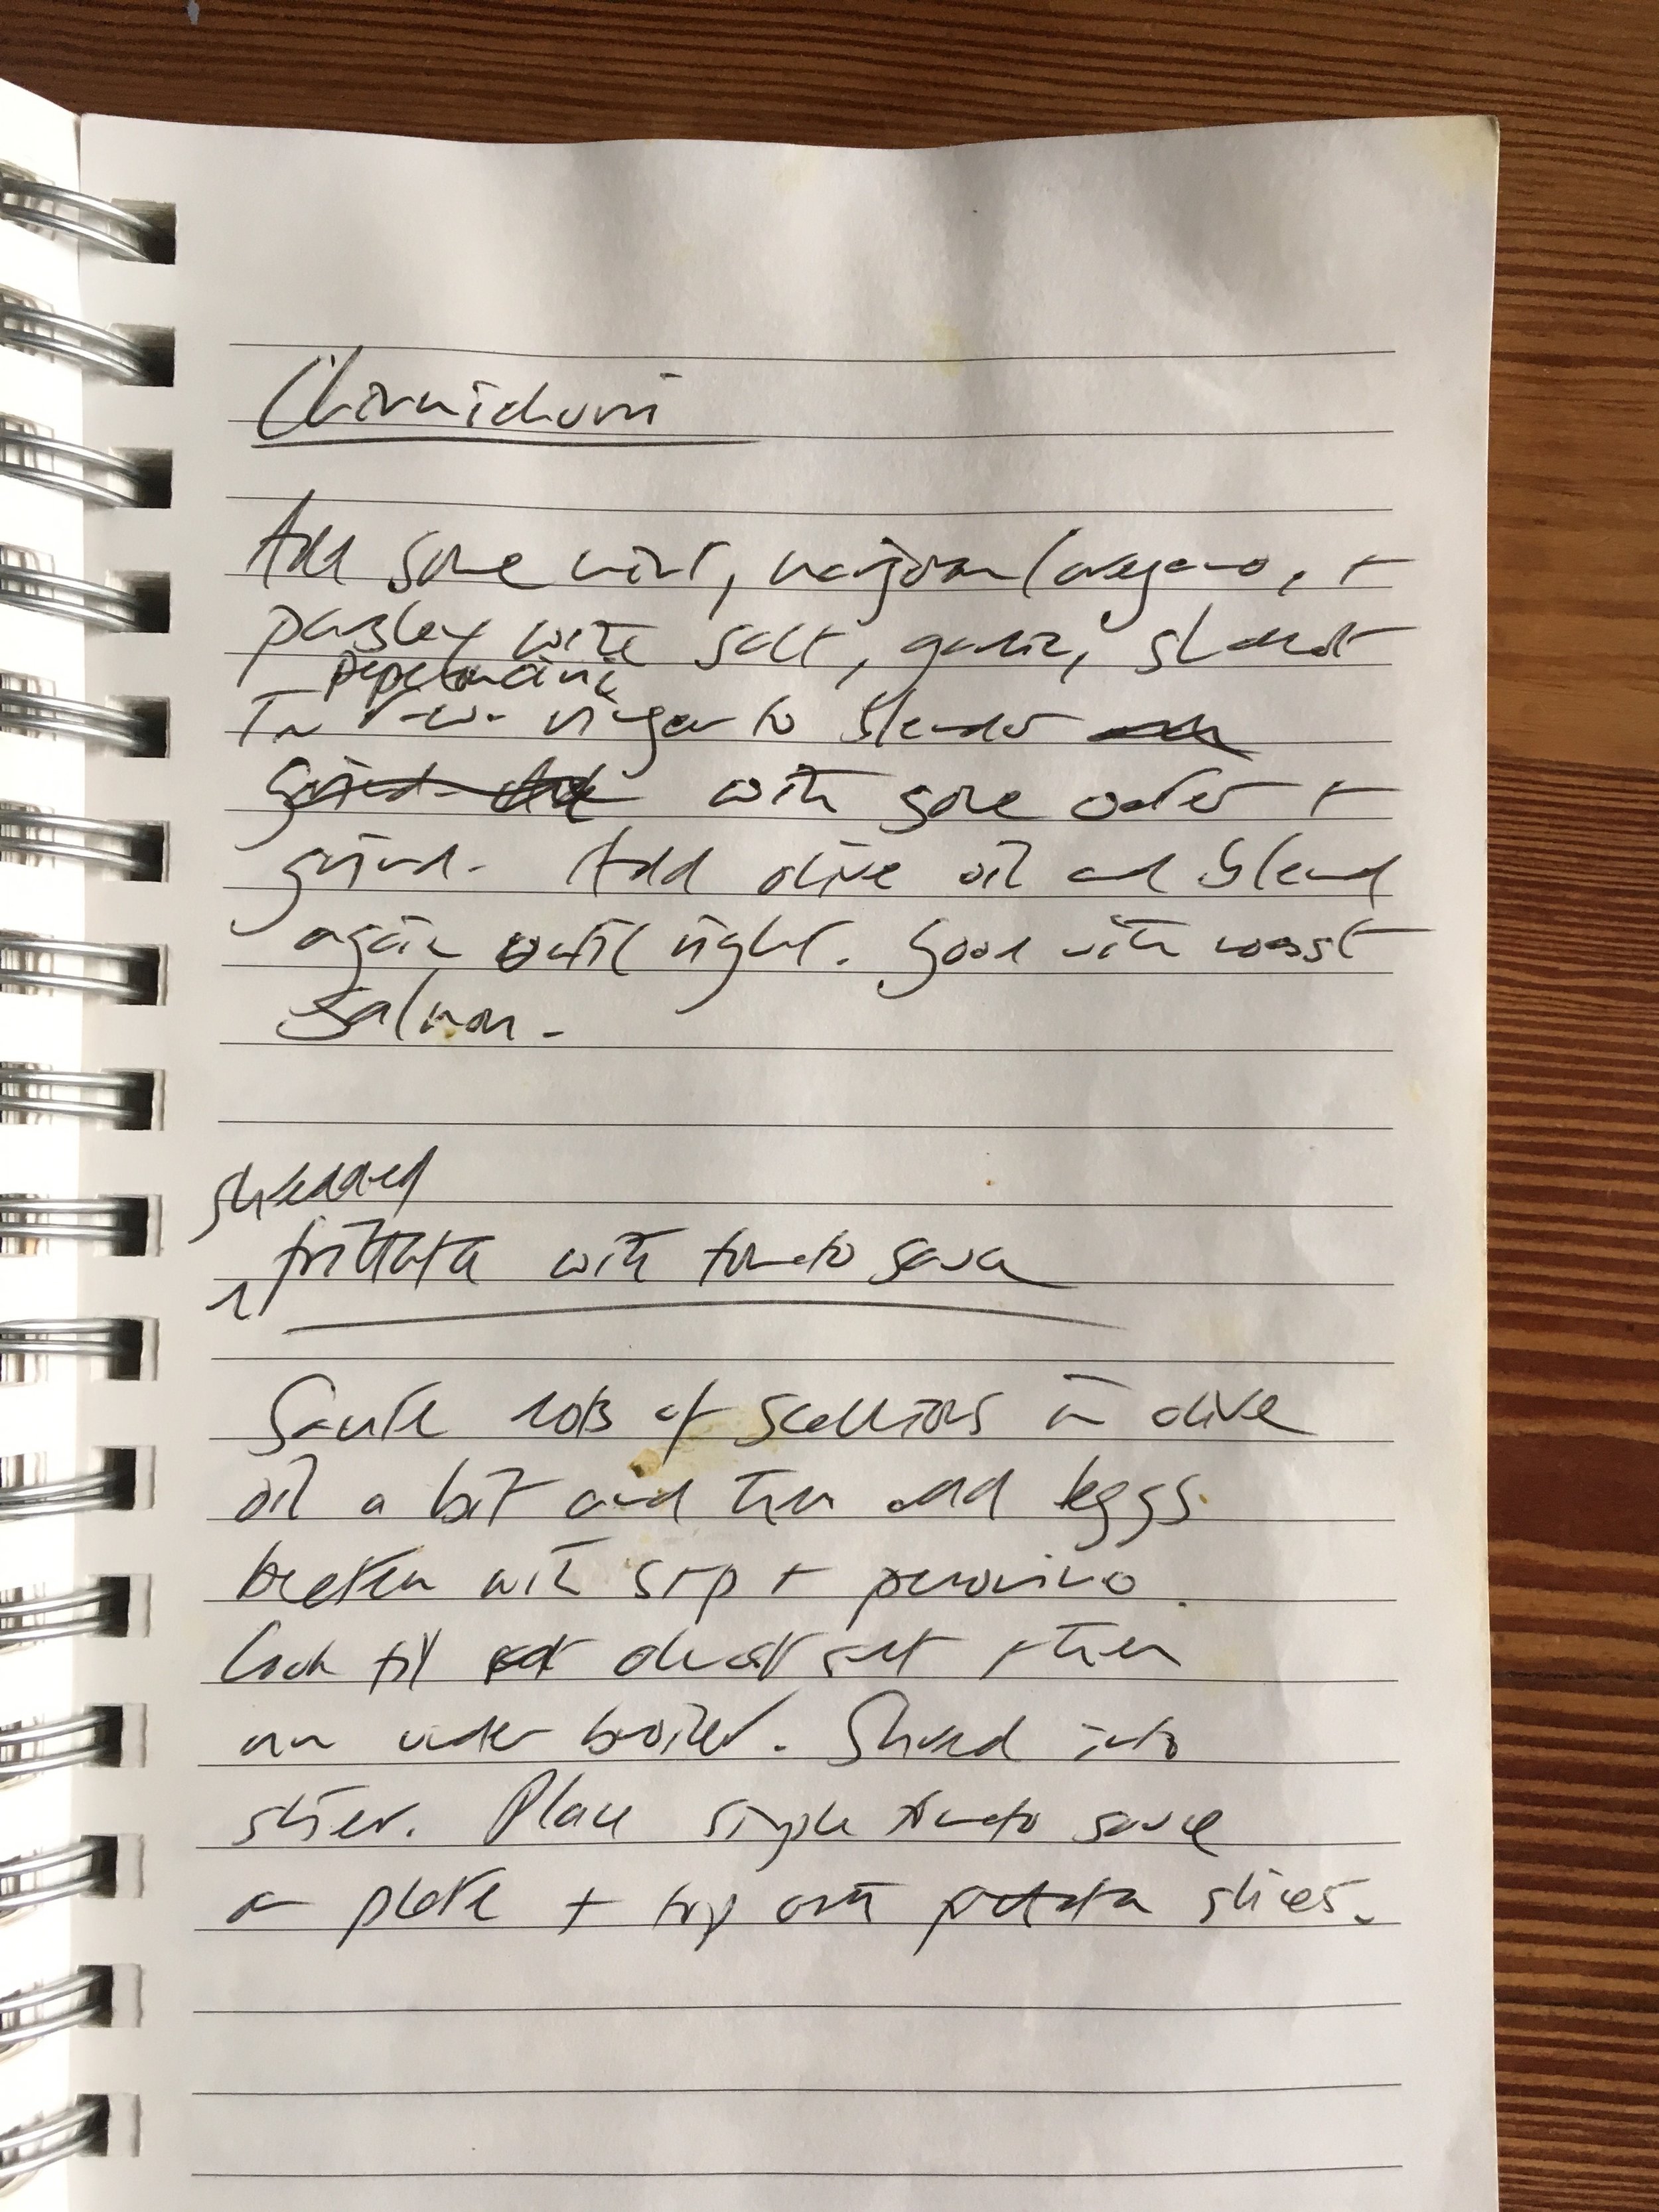 Chimichurri
Add some mint, marjoram/oregano, +
parsley with salt, garlic, shallot
peperoncini,
vinegar to blender
with some water +
grind. Add olive oil and blend
again until right. Good with roast
salmon.
shredded
frittata with tomato sauce
Saute lots of scallions in olive
oil a bit and then add eggs
beaten with s+p + pecorino.
Cook til almost set + then
run under broiler. Shred into
slices. Place simple tomato sauce
on plate + top with frittata slices.